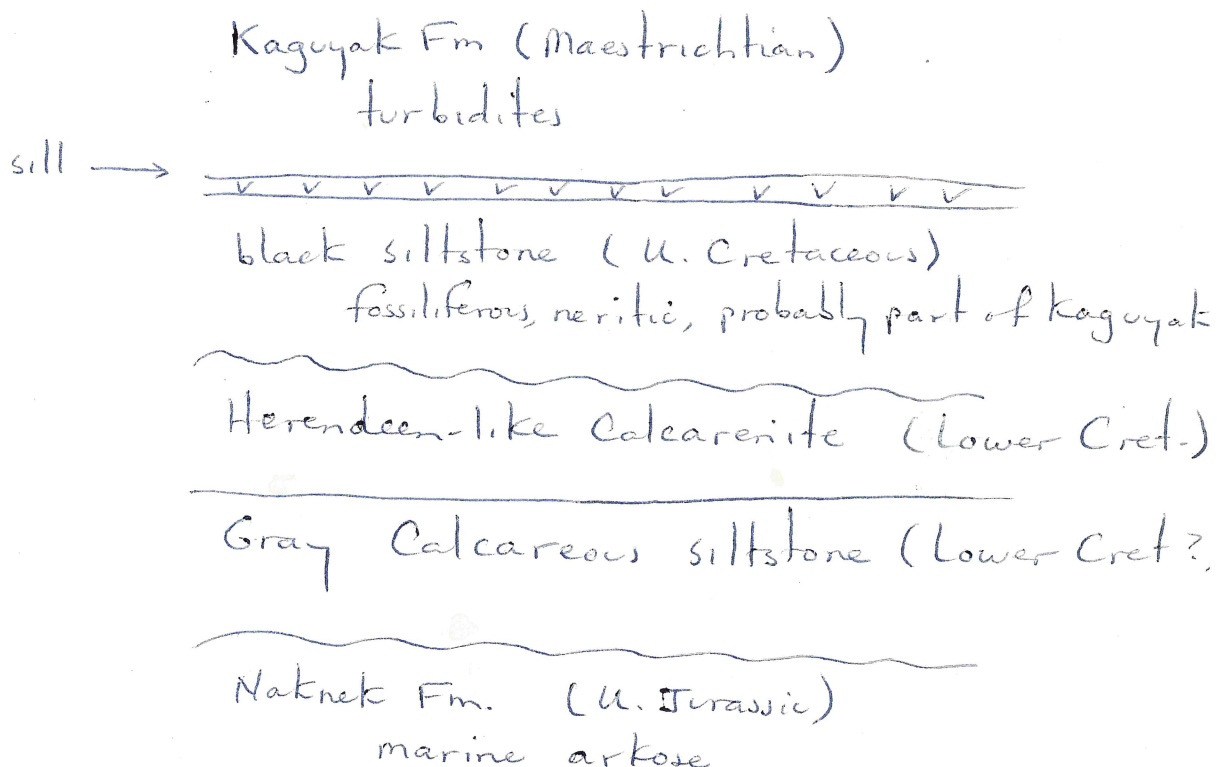 Kaguyak Fm (Maestrichtian)
turbidites
sill
black siltstone (U. Cretaceous)
fossiliferous, neritic, probably part of Kaguyak
Herendeen-like Calcarenite (Lower Cret.)
Gray Calcareous siltstone (Lower Cret?,
Naknek Fm. (U. Jurassic)
marine arkose